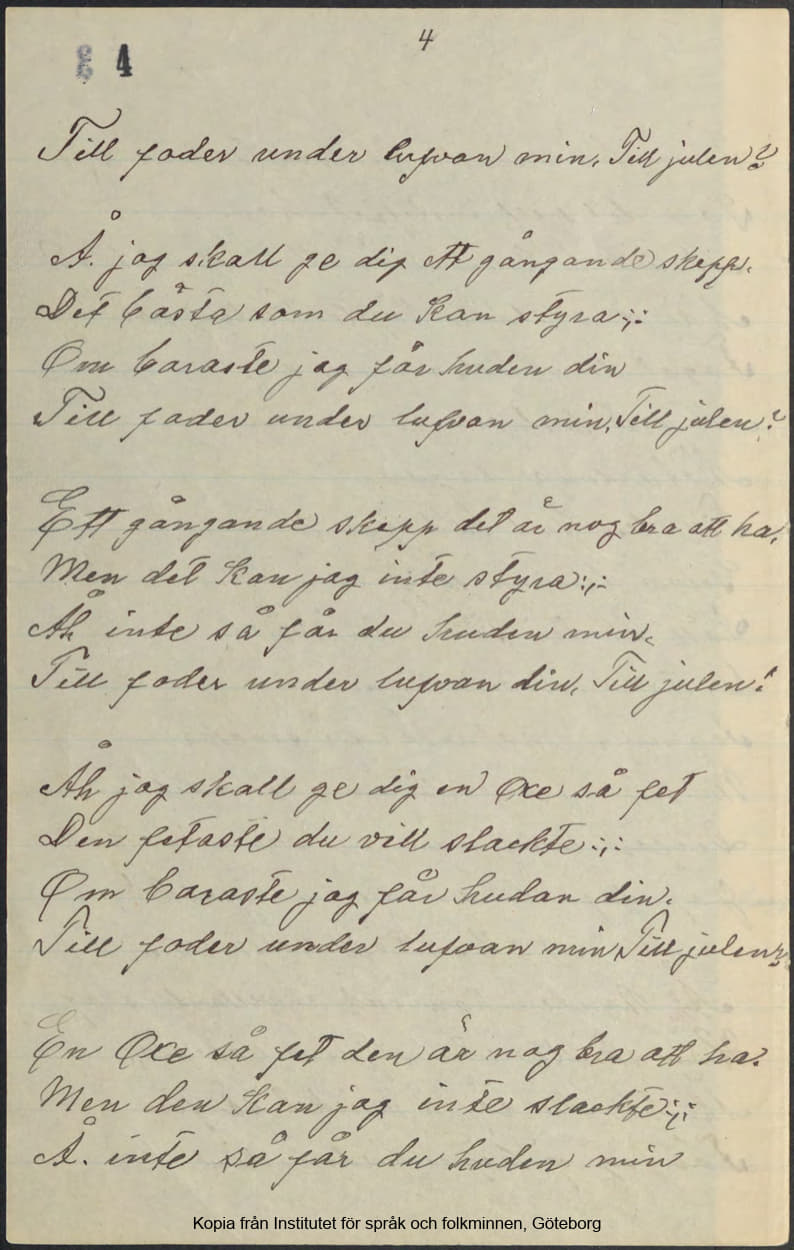 4
4
Till foder under lufvan min, Till julen?
Å. jag skall ge dig ett gångande skepp.
Det båsta som du kan styra :,:
Om baraste jag får huden din
Till foder under lufvan min, Till julen?
Ett gångande skepp det är nog bra att ha,
Men det kan jag inte styra :,:
Åh inte så får du huden min.
Till foder under lufvan din, Till julen!
Åh jag skall ge dig en Oxe så fet
Den fetaste du vill slackte :,:
Om baraste jag får hudan din.
Till foder under lufvan min, Till julen?
En Oxe så fet den är nog bra att ha.
Men den kan jag inte slackte :,:
Å. inte så får du huden min
Kopia från Institutet för språk och folkminnen, Göteborg